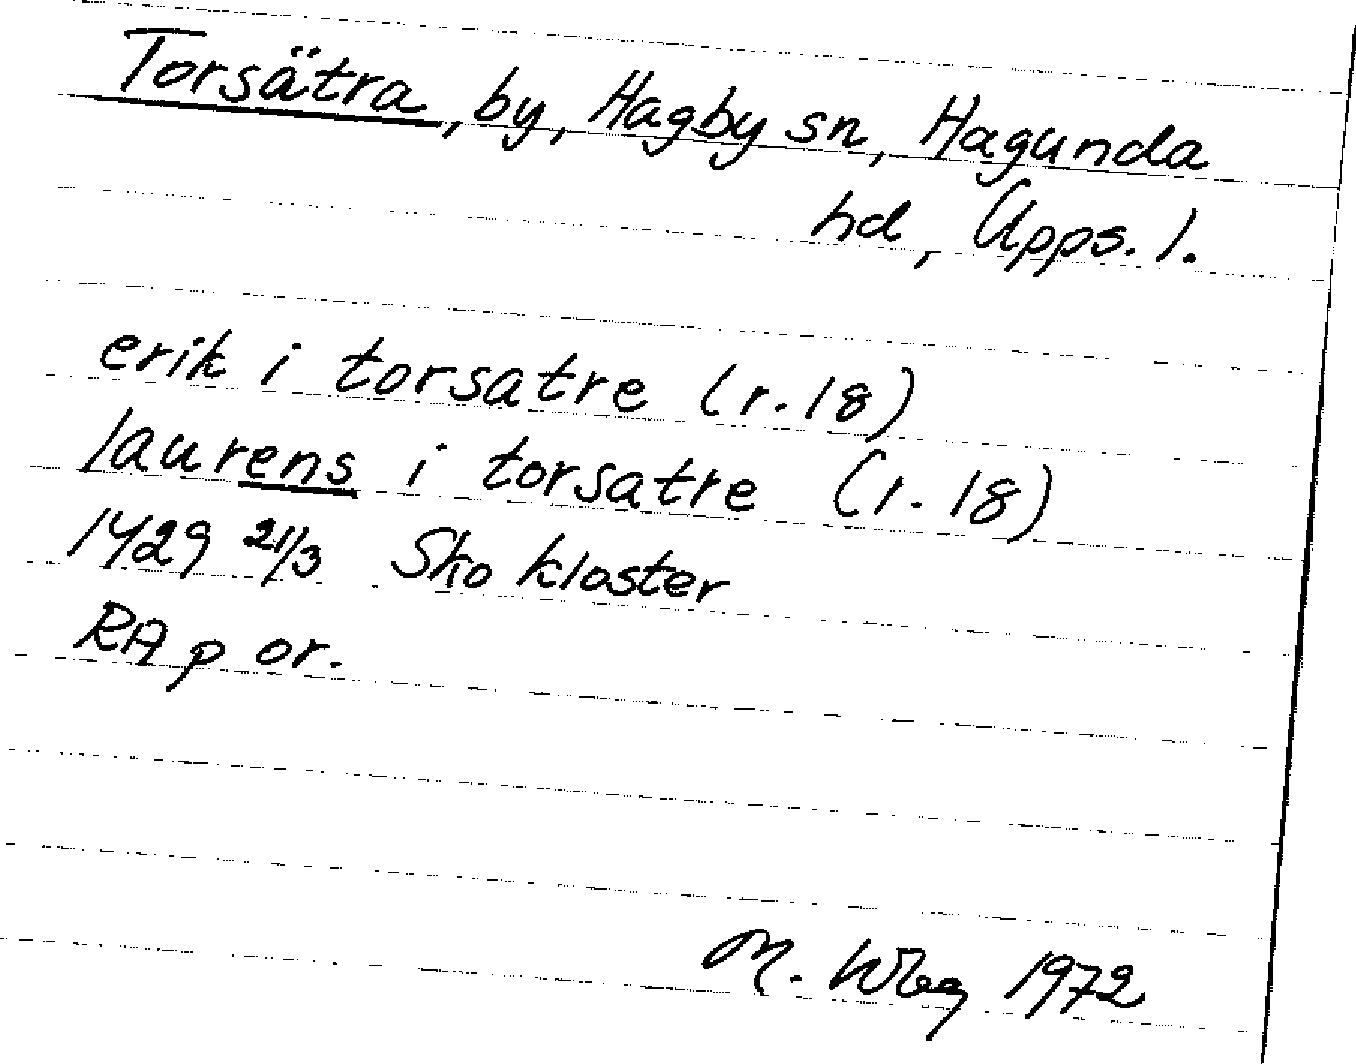 Torsätra, by, Hagby sn, Hagunda
hd, Upps. l.
erik i torsatre (r. 18)
laurens i torsatre (r. 18)
1429 21/3 Sko kloster
RA p or.
M. 1972